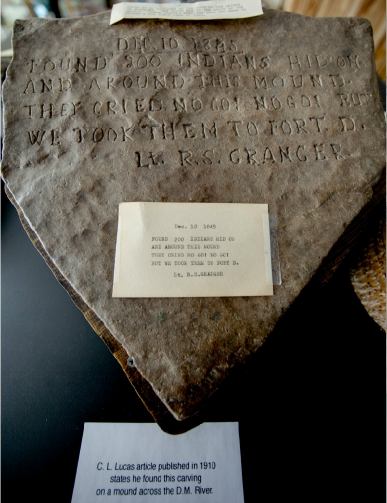 DEC. 10 1845
FOUND 200 INDIANS HID ON
AND AROUND THIS MOUND.
THEY CRIED NO GO! NO GO! BUT
WE TOOK THEM TO FORT. D.
LT. R.S. GRANGER
Dec. 10 1845
FOUND 200 INDIANS HID ON
AND AROUND THIS MOUND
THEY CRIED NO GO! NO GO!
BUT WE TOOK THEM TO FORT D.
Lt. R.S.GRANGER
C. L. Lucas article published in 1910
states he found this carving
on a mound across the D.M. River.